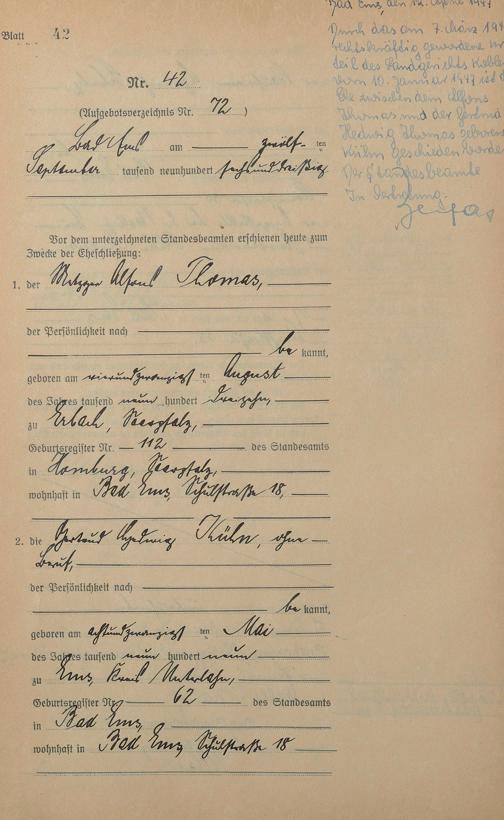 Blatt 42
Bad Ems, den 12. April 1947
Durch das am 7. März 194
rechtskräftig gewordene Ur
teil des Landgerichts Koble
vom 10. Januar 1947 ist d
Ehe zwischen dem Alfons
Thomas und der Gertrud
Hedwig Thomas geborene
Kühn geschieden worde
Der Standesbeamte
In Vertretung:
Nr. 42
(Aufgebotsverzeichnis Nr. 72)
Bad Ems am zwölf- ten
September tausend neunhundert sechsunddreißig
Vor dem unterzeichneten Standesbeamten erschienen heute zum
Zwecke der Eheschließung:
1. der Metzger Alfons Thomas,
der Persönlichkeit nach
be kannt,
geboren am vierundzwanzigs ten August
des Jahres tausend neun hundert dreizehn,
zu Erbach, Saarpfalz,
Geburtsregister Nr. 112 des Standesamts
in Homburg, Saarpfalz,
wohnhaft in Bad Ems, Schulstraße 18,
2. die Gertrud Hedwig Kühn, ohne
Beruf,
der Persönlichkeit nach
be kannt,
geboren am achtundzwanzigs ten Mai
des Jahres tausend neun hundert neun
zu Ems Kreis Unterlahn,
Geburtsregister Nr. 62 des Standesamts
in Bad Ems,
wohnhaft in Bad Ems, Schulstraße 18